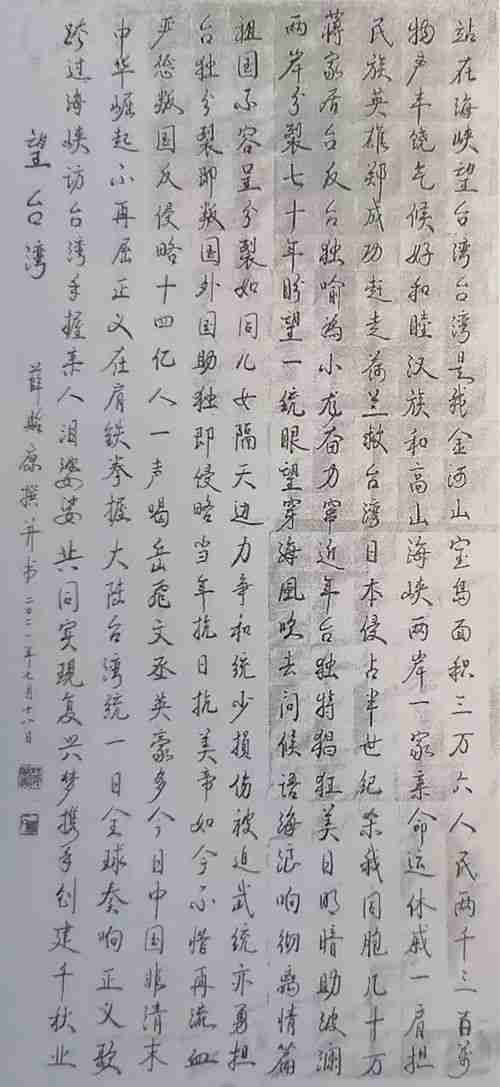 站在海峡望台湾台湾是我金河山宝岛面积三万六人民两千三百万
物产丰饶气候好和睦汉族和高山海峡两岸一家亲命运休戚一肩担
民族英雄郑成功赶走荷兰救台湾日本侵占半世纪杀我同胞几十万
蒋家居台反台独喻为小龙奋力窜近年台独特猖狂美日明暗助波澜
两岸分裂七十年盼望一统眼望穿海風吹去问候语海浪响彻离情篇
祖国不容呈分裂如同儿女隔天边力争和统少损伤被迫武统亦勇担
台独分裂即叛国外国助独即侵略当年抗日抗美帝如今不惜再流血
严惩叛国反侵略十四亿人一声喝岳飛文丞英豪多今日中国非清末
中华崛起不再屈正义在肩铁拳握大陆台湾统一日全球奏响正义歌
跨过海峡访台湾手握亲人泪婆娑共同实現复兴梦携手创建千秋业
望台湾
薛 康撰并书二〇二一年七月十八日